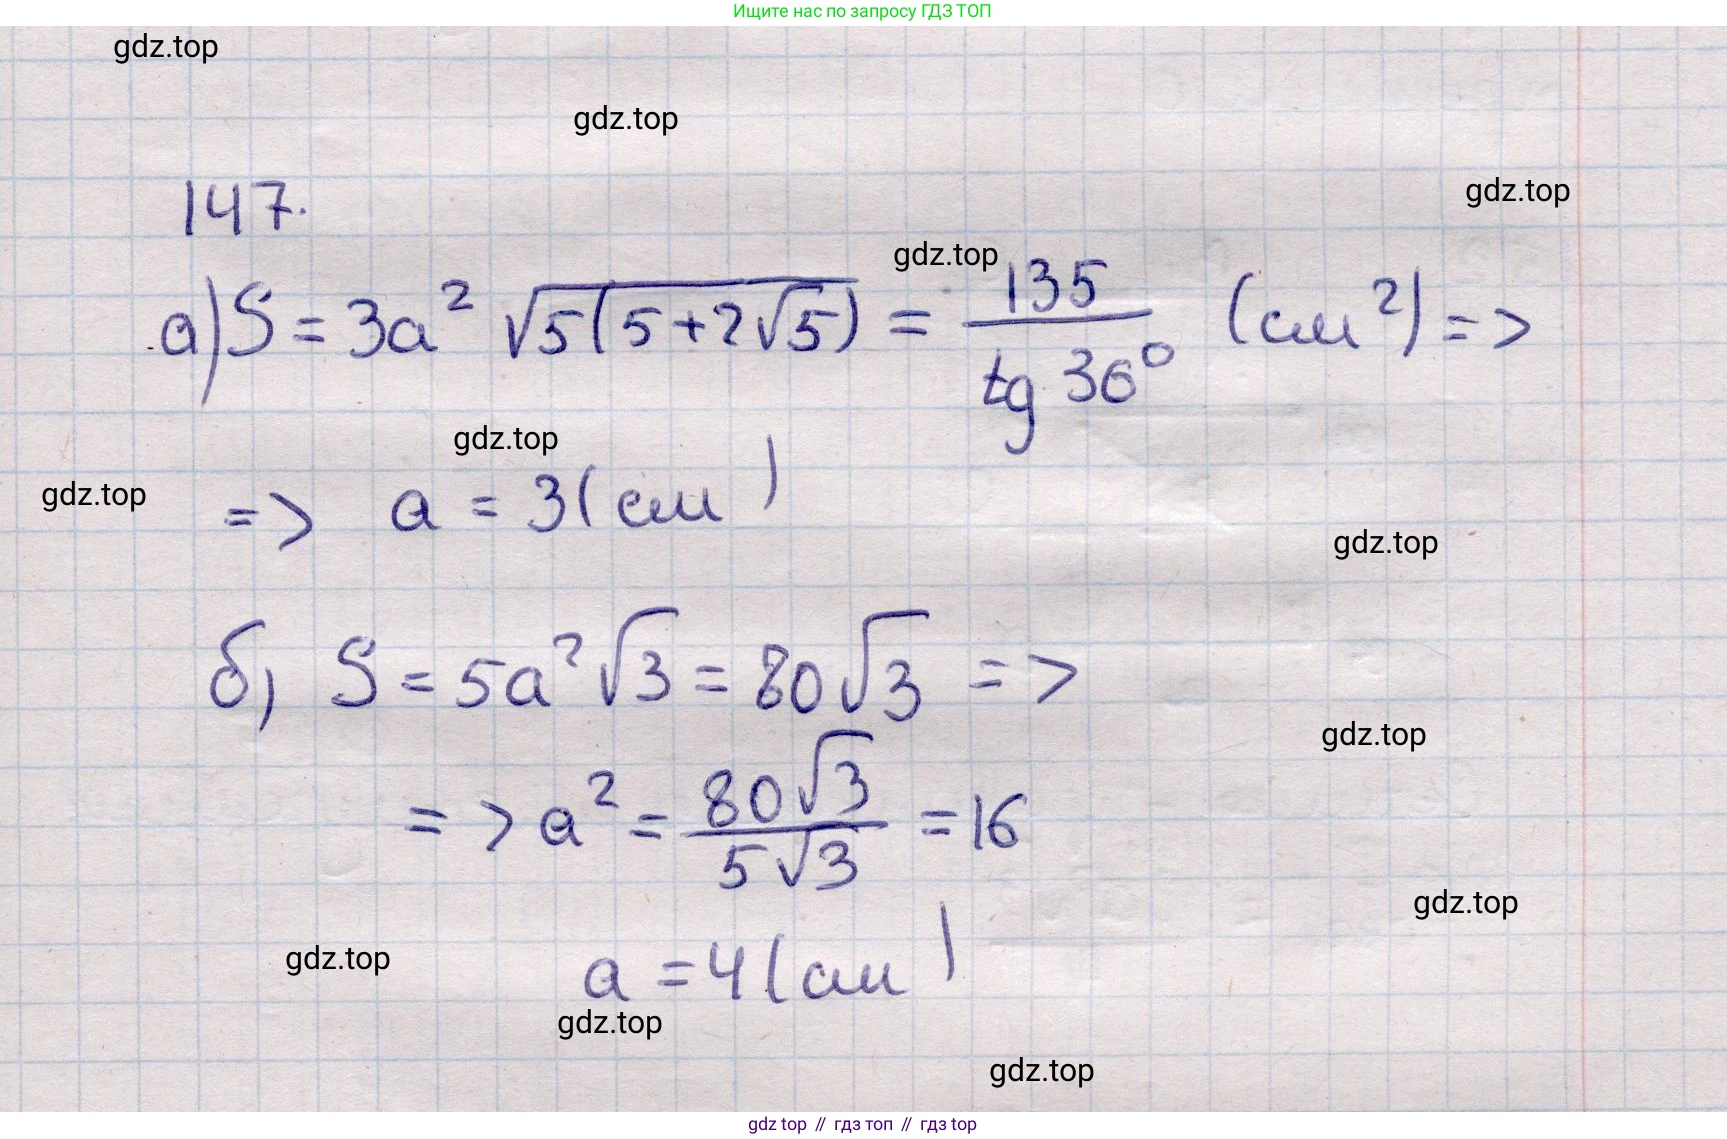 Ищите нас по запросу ГДЗ ТОП
gdz.top
gdz.top
gdz.top
147.
gdz.top
а) S = 3a² √(5(5+2√5)) = 135 / tg 36° (см²) =>
gdz.top
gdz.top
=> a = 3 (см)
gdz.top
б) S = 5a²√3 = 80√3 =>
gdz.top
=> a² = 80√3 / 5√3 = 16
gdz.top
gdz.top
a = 4 (см)
gdz.top
gdz.top
gdz top // гдз топ // гдз top